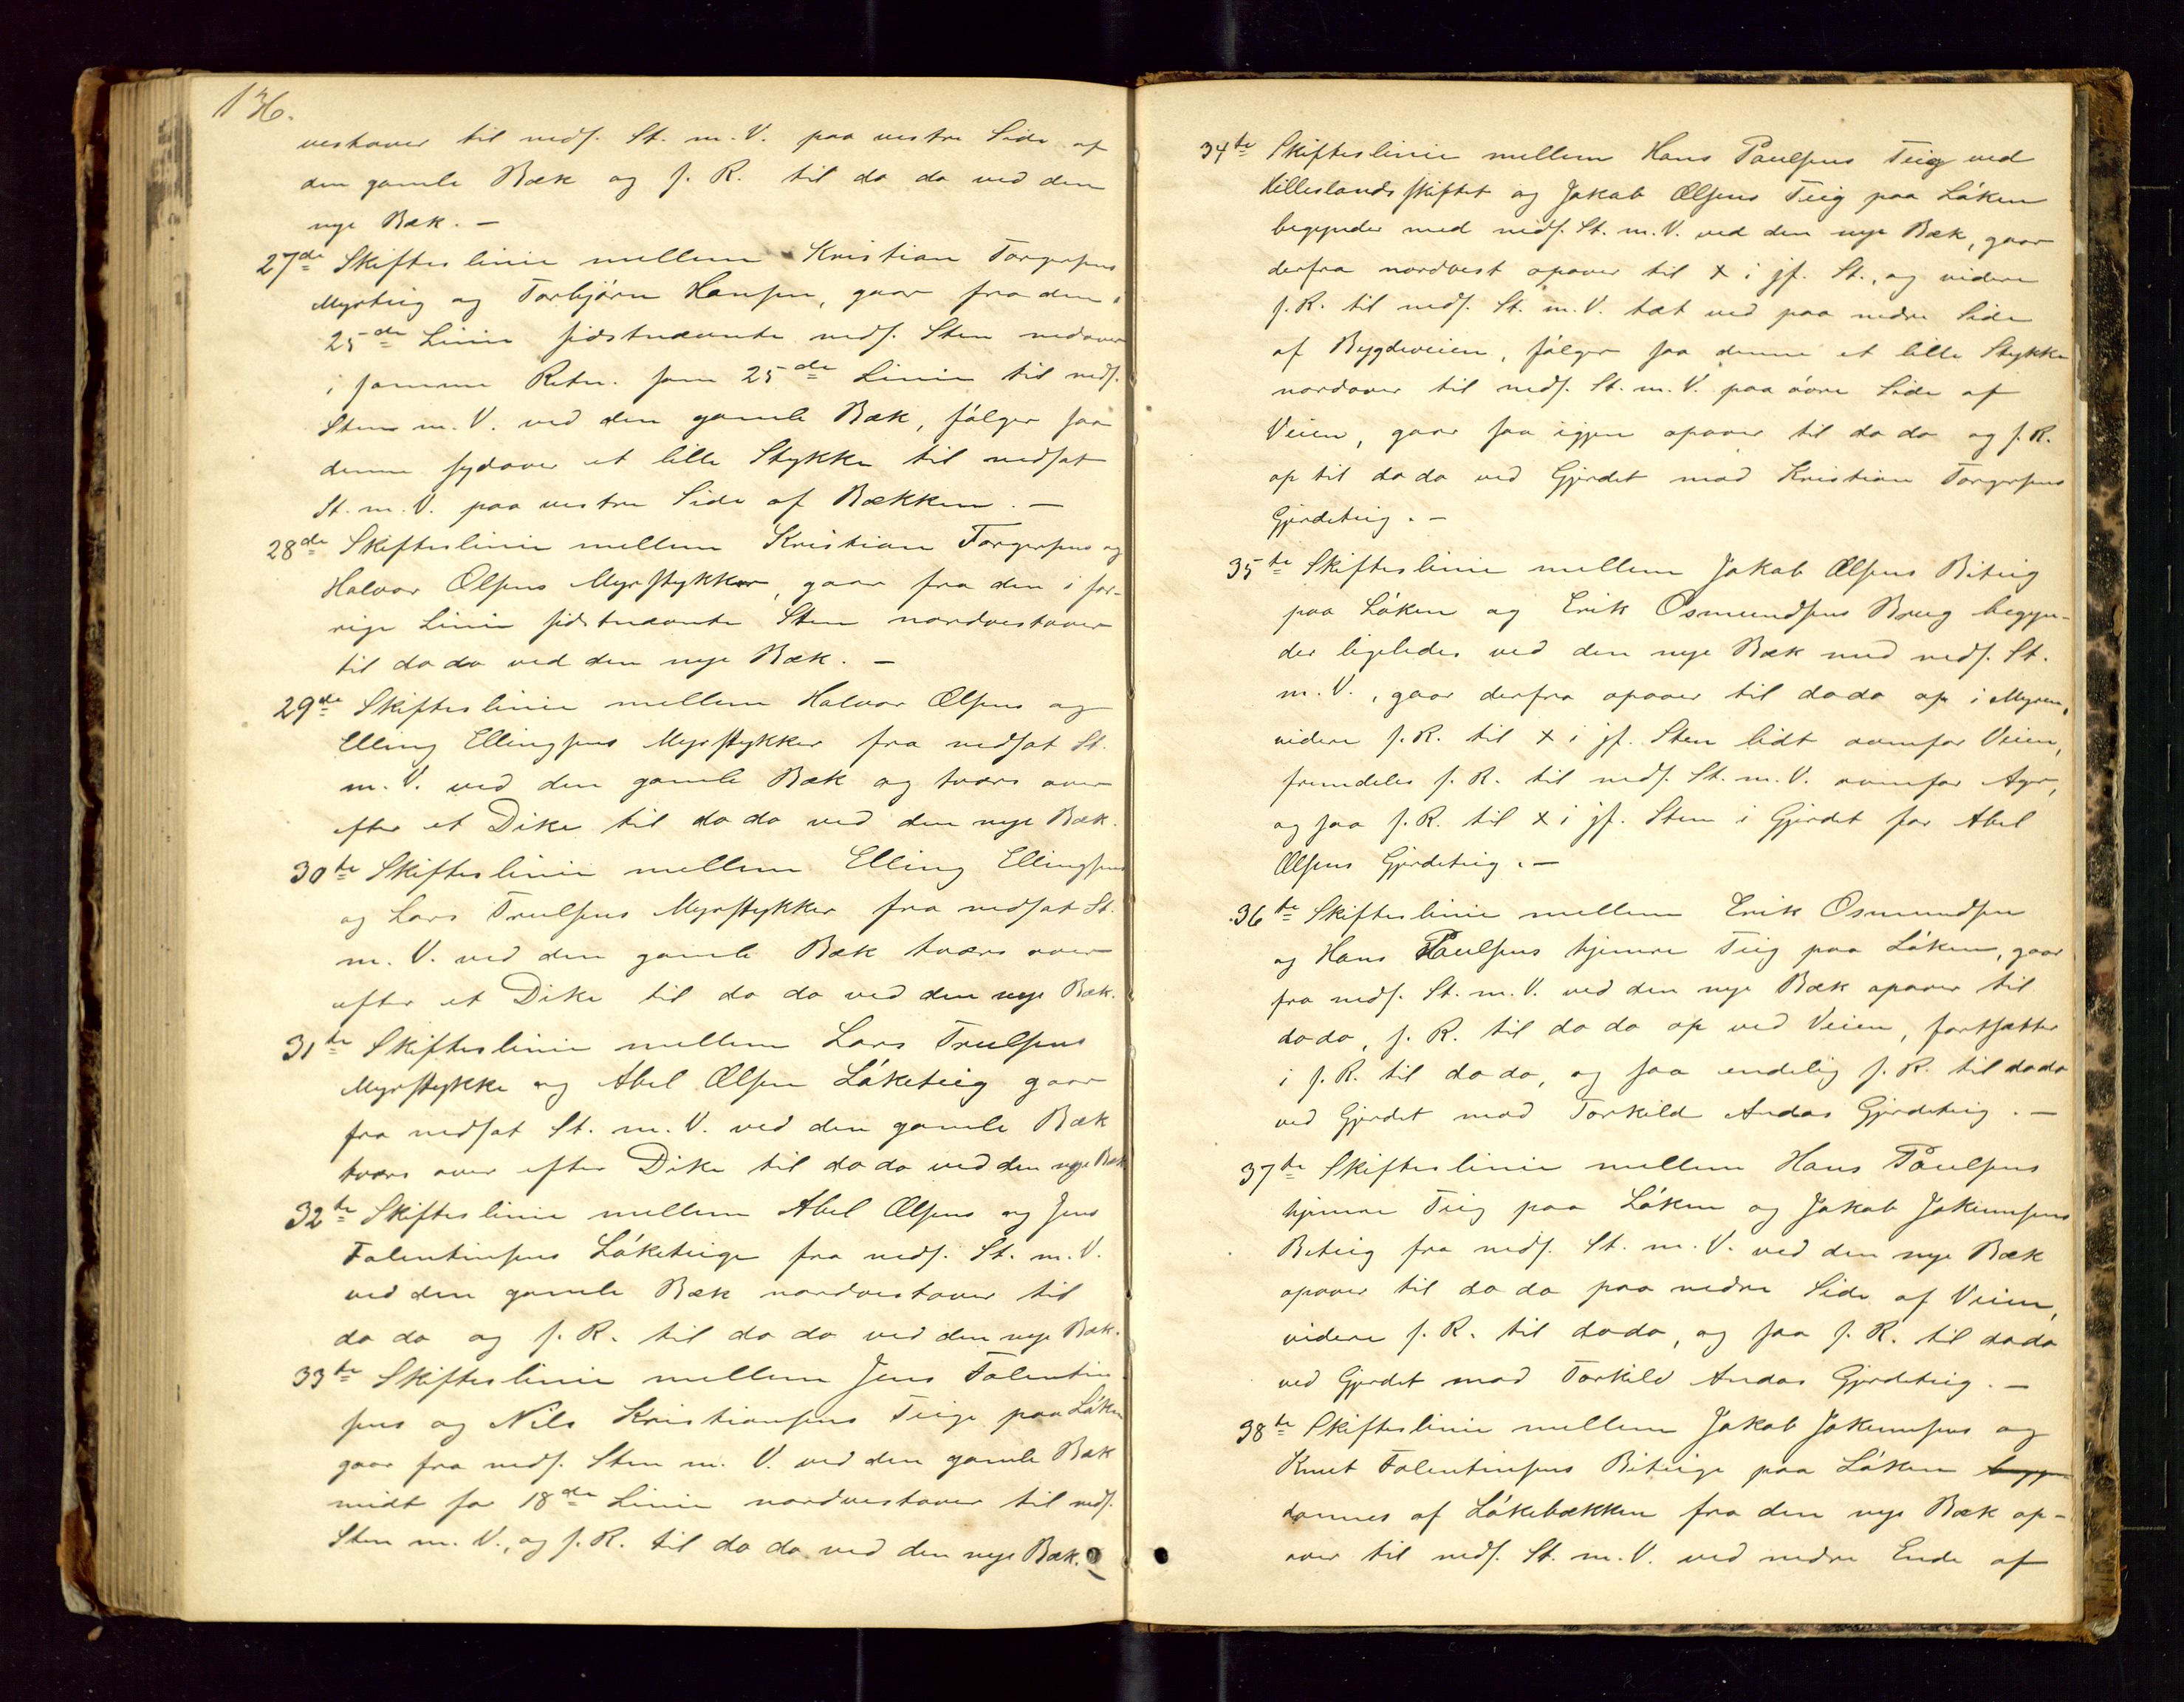 136.
vestover til neds. St. m. V. paa vestre Side af
den gamle Bæk og s. R. til do do ved den
nye Bæk. —
27de Skifteslinie mellem Kristian Torgersens
Myrteig og Torbjørn Hansen, gaar fra den i
25de Linie sidstnævnte neds. Sten nedover
i samme Retn. som 25de Linie til neds.
Sten m. V. ved den gamle Bæk, følger saa
denne sydover et lille Stykke til nedsat
St. m. V. paa vestre Side af Bækken. —
28de Skifteslinie mellem Kristian Torgersens og
Halvor Olsens Myrstykker, gaar fra den i for-
rige Linie sidstnævnte Sten nordvestover
til do do ved den nye Bæk. —
29de Skifteslinie mellem Halvor Olsens og
Elling Ellingsens Myrstykker fra nedsat St.
m. V. ved den gamle Bæk og tvers over
efter et Dike til do do ved den nye Bæk.
30te Skifteslinie mellem Elling Ellingsens
og Lars Trulsens Myrstykker fra nedsat St.
m. V. ved den gamle Bæk tværs over
efter et Dike til do do ved den nye Bæk.
31te Skifteslinie mellem Lars Trulsens
Myrstykke og Abel Olsen Løketeig gaar
fra nedsat St. m. V. ved den gamle Bæk
tværs over efter Dike til do do ved den nye Bæk
32te Skifteslinie mellem Abel Olsens og Jens
Falentinsens Løketeige fra neds. St. m. V.
ved den gamle Bæk nordvestover til
do do og s. R. til do do ved den nye Bæk.
33te Skifteslinie mellem Jens Falentin
sens og Nils Kristiansens Teige paa Løken
gaar fra neds. Sten m. V. ved den gamle Bæk
midt for 18de Linie nordvestover til neds.
Sten m. V., og s. R. til do do ved den nye Bæk.
34te Skifteslinie mellem Hans Paulsens Teig ved
Lilleslandsskiftet og Jakob Olsens Teig paa Løken
begynder med neds. St. m. V. ved den nye Bæk, gaar
derfra nordvest opover til x i jf. St., og videre
s. R. til neds. St. m. V. tæt ved paa nedre Side
af Bygdeveien, følger saa denne et lille Stykke
nordover til neds. St. m. V. paa øvre Side af
Veien, gaar saa igjen opover til do do og s. R.
op til do do ved Gjerdet mod Kristian Torgersens
Gjerdeteig. —
35te Skifteslinie mellem Jakob Olsens Biteig
paa Løken og Erik Osmundsens Brug begyn-
der ligeledes ved den nye Bæk med neds. St.
m. V., gaar derfra opover til do do op i Myren,
videre s. R. til x i jf. Sten lidt ovenfor Veien,
fremdeles s. R. til neds. St. m. V. ovenfor Ager,
og saa s. R. til x i jf. Sten i Gjerdet for Abel
Olsens Gjerdeteig. —
36te Skifteslinie mellem Erik Osmundsen
og Hans Paulsens hjemre Teig paa Løken, gaar
fra neds. St. m. V. ved den nye Bæk opover til
do do, s. R. til do do op ved Veien, fortsætter
i s. R. til do do, og saa endelig s. R. til do do
ved Gjerdet mod Torkild Andas Gjerdeteig. —
37te Skifteslinie mellem Hans Paulsens
hjemre Teig paa Løken og Jakob Jokumsens
Biteig fra neds. St. m. V. ved den nye Bæk
opover til do do paa nedre Side af Veien,
videre s. R. til do do, og saa s. R. til do do
ved Gjerdet mod Torkild Andas Gjerdeteig. —
38te Skifteslinie mellem Jakob Jokumsens og
Knut Falentinsens Biteige paa Løken
dannes af Løkebækken fra den nye Bæk op-
over til neds. St. m. V. ved nedre Ende af